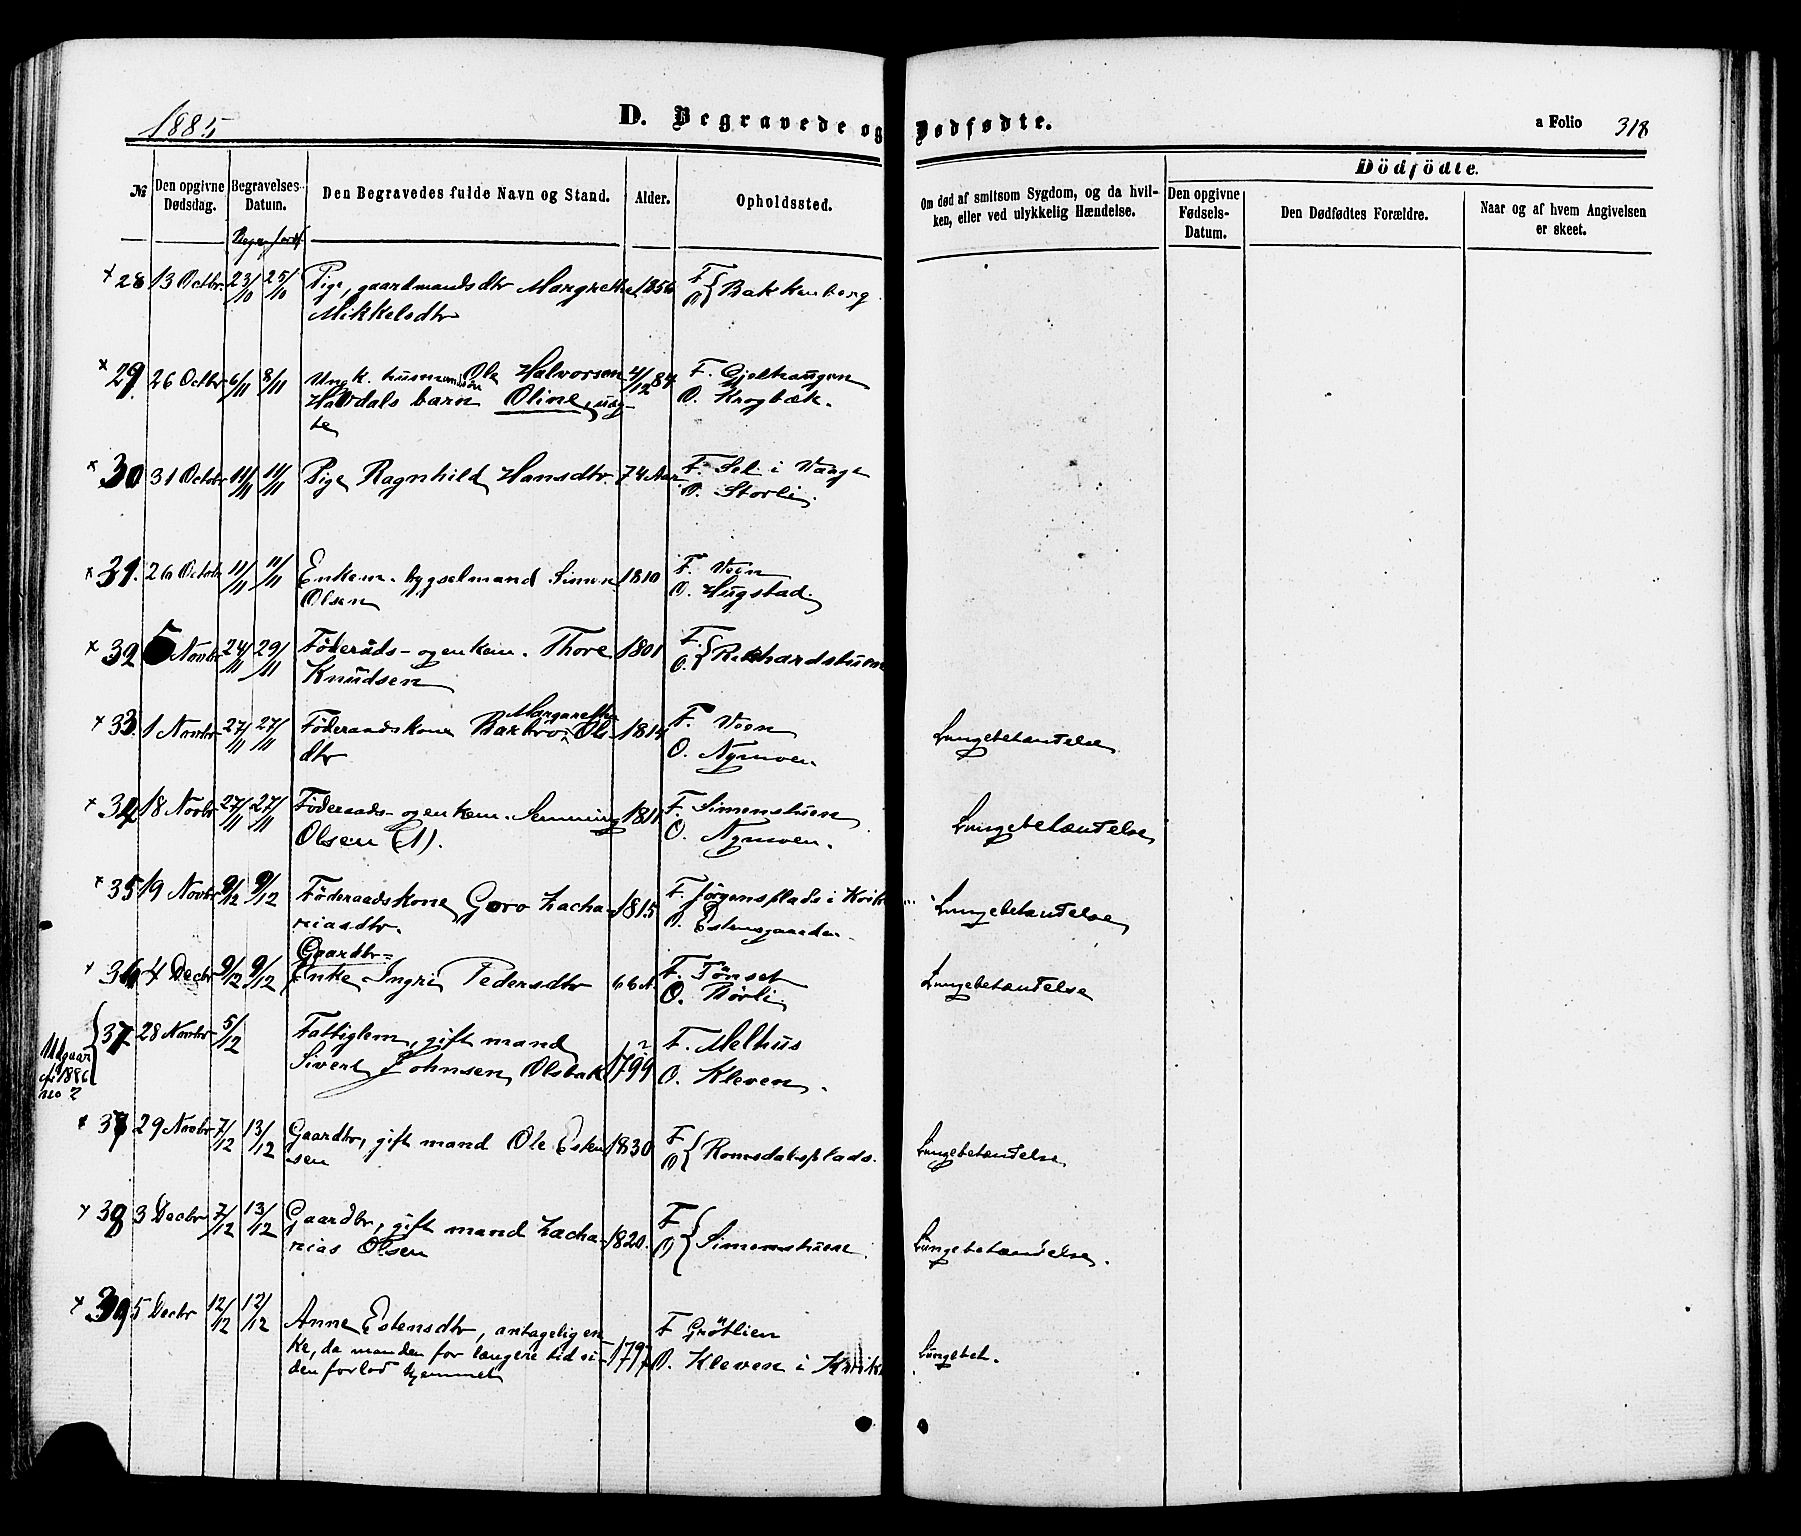 1885
D. Begravede og Dødfødte.
a Folio 318
№
Den opgivne Dødsdag.
Begravelses-Datum.
Den Begravedes fulde Navn og Stand.
Alder.
Opholdssted.
Om død af smitsom Sygdom, og da hvil-
ken, eller ved ulykkelig Hændelse.
Dödfödte.
Den opgivne Fødsels-Datum.
Den Dødfødtes Forældre.
Naar og af hvem Angivelsen er skeet.
+ 28 13 Octbr. 23/10 25/10 Pige, gaardmandsdtr Margrethe 1856 F. O. { Bakkenberg
Mikkelsdtr
+ 29. 26 Octbr 6/11 8/11 Ungk. husmandssøn Ole Halvorsen 4/12 84. F. Gjelhaugen
Havdals barn Oline, uæg- O. Krogbæk.
te
+ 30 31 Octbr 11/11 11/11 Pige Ragnhild Hansdtr. 74 Aar F. Sel i Vaage
O. Storli.
+ 31. 26 Octbr 11/11 11/11 Enkem. bygselmand Simen 1810 F. Voen
Olsen O. Hugstad.
+ 32 5 Novbr 24/11 29/11 Föderåds- og enkem. Thore 1801 F. O. {
Knudsen
+ 33. 1 Novbr 27/11 27/11 Föderaadskone Barbro Margarethe Ols 1814 F. Voen Lungebetændelse
dtr O. Nymoen
+ 34 18 Novbr 27/11 27/11 Föderaads- og enkem. Semming 1811 F. Simenstuen Lungebetændelse
Olsen (1). O. Nymoen.
+ 35 19 Novbr 9/12 9/12 Föderaadskone Goro Zacha- 1815 F. Jørgensplads i Kvik Lungebetændelse
riasdtr. O. Estensgaarden
Gaardbr=
+ 36 4 Decbr 9/12 9/12 Enke Ingri Pedersdtr 66 A. F. Tönset Lungebetændelse
O. Börli
37 28 Novbr 5/12 Fattiglem, gift mand F. Melhus
Sivert Johnsen Olsbak 1799 ? O. Kleven.
Udgaar
cfr 1886
no 2
+ 37 29 Novbr 7/12 13/12 Gaardbr, gift mand Ole Esten 1830 F O { Romsdalsplads. Lungebetændelse
sen
+ 38 3 Decbr 7/12 13/12 Gaardbr, gift mand Zacha- 1820. F O { Simenstuen. Lungebetændelse.
rias Olsen
+ 39 5 Decbr 12/12 12/12 Anne Estensdtr, antagelig en F Grötlien
ke, da manden for længere tid si- 1797 O. Kleven i Kvikne Lungebet.
den forlod hjemmet